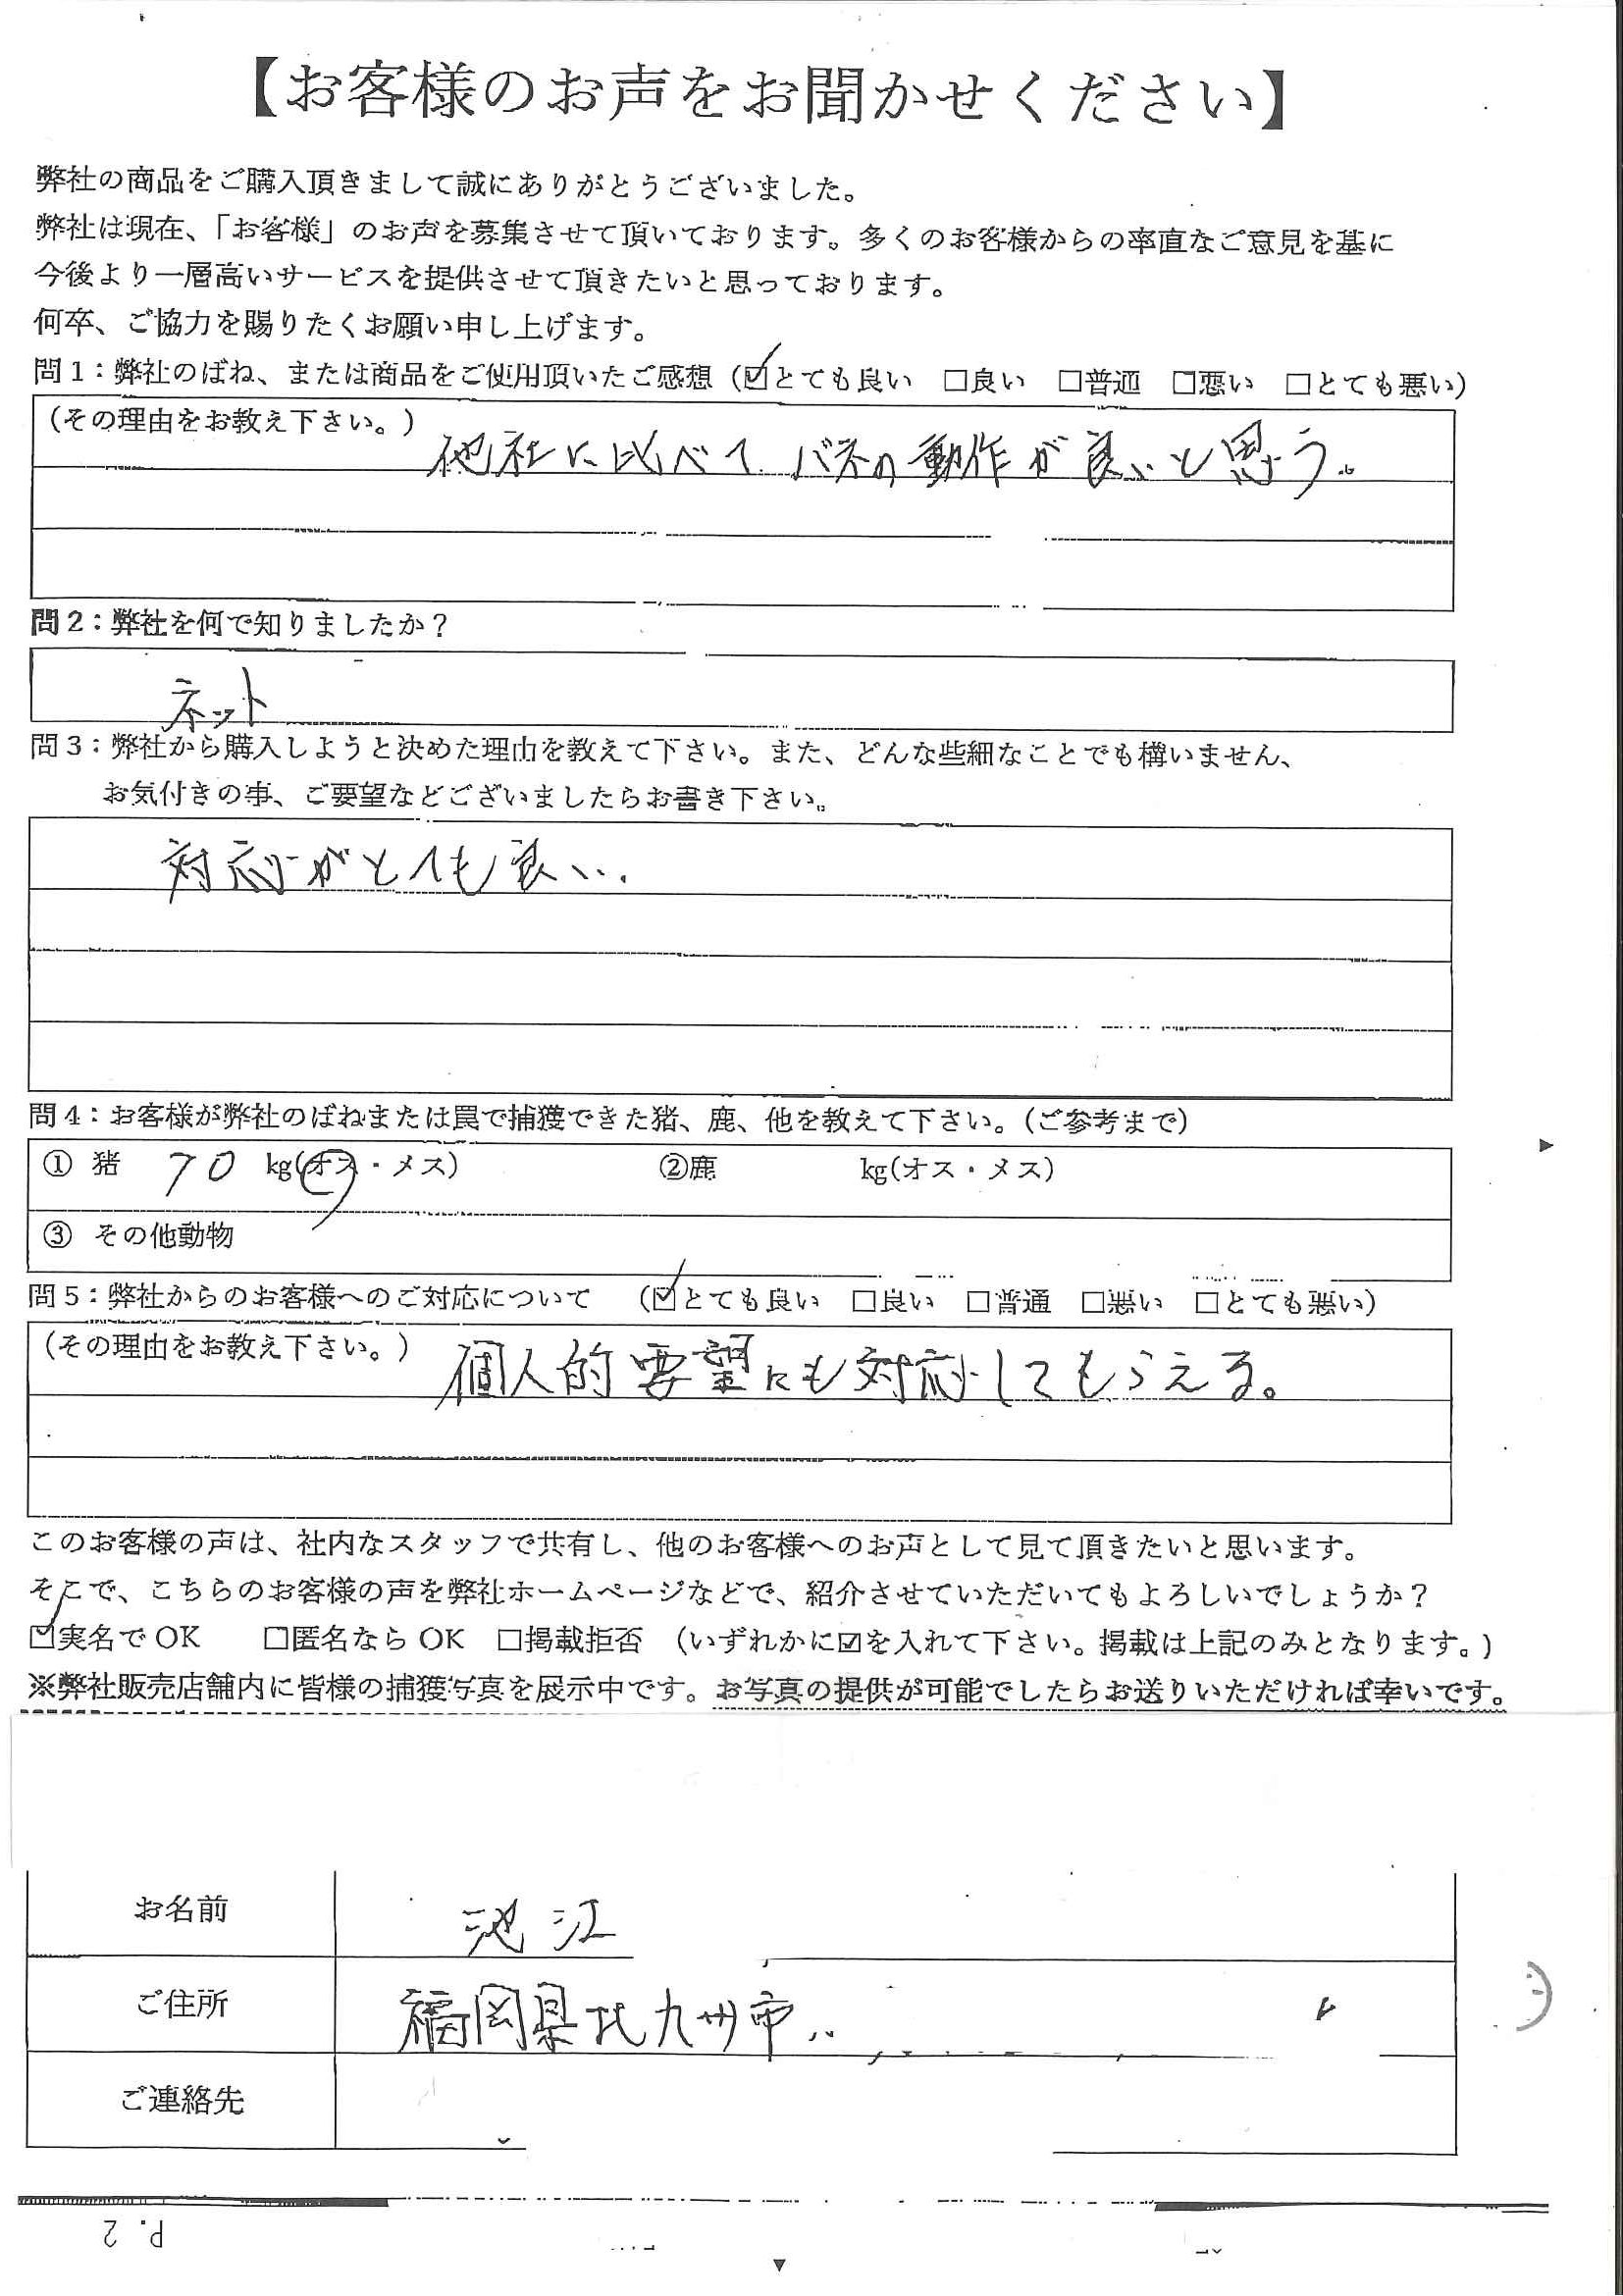 【お客様のお声をお聞かせください】
弊社の商品をご購入頂きまして誠にありがとうございました。
弊社は現在、「お客様」のお声を募集させて頂いております。多くのお客様からの率直なご意見を基に
今後より一層高いサービスを提供させて頂きたいと思っております。
何卒、ご協力を賜りたくお願い申し上げます。
問1：弊社のばね、または商品をご使用頂いたご感想（☑とても良い　□良い　□普通　□悪い　□とても悪い）
（その理由をお教え下さい。）他社に比べてバネの動作が良いと思う。
問2：弊社を何で知りましたか？
ネット
問3：弊社から購入しようと決めた理由を教えて下さい。また、どんな些細なことでも構いません、
お気付きの事、ご要望などございましたらお書き下さい。
対応がとても良い.
問4：お客様が弊社のばねまたは罠で捕獲できた猪、鹿、他を教えて下さい。（ご参考まで）
① 猪　70　kg(オス・メス)　②鹿　kg(オス・メス)
③ その他動物
問5：弊社からのお客様へのご対応について　（☑とても良い　□良い　□普通　□悪い　□とても悪い）
（その理由をお教え下さい。）個人的要望にも対応してもらえる。
このお客様の声は、社内なスタッフで共有し、他のお客様へのお声として見て頂きたいと思います。
そこで、こちらのお客様の声を弊社ホームページなどで、紹介させていただいてもよろしいでしょうか？
☑実名でOK　□匿名ならOK　□掲載拒否　（いずれかに☑を入れて下さい。掲載は上記のみとなります。）
※弊社販売店舗内に皆様の捕獲写真を展示中です。お写真の提供が可能でしたらお送りいただければ幸いです。
お名前　池江
ご住所　福岡県北九州市
ご連絡先
P.2